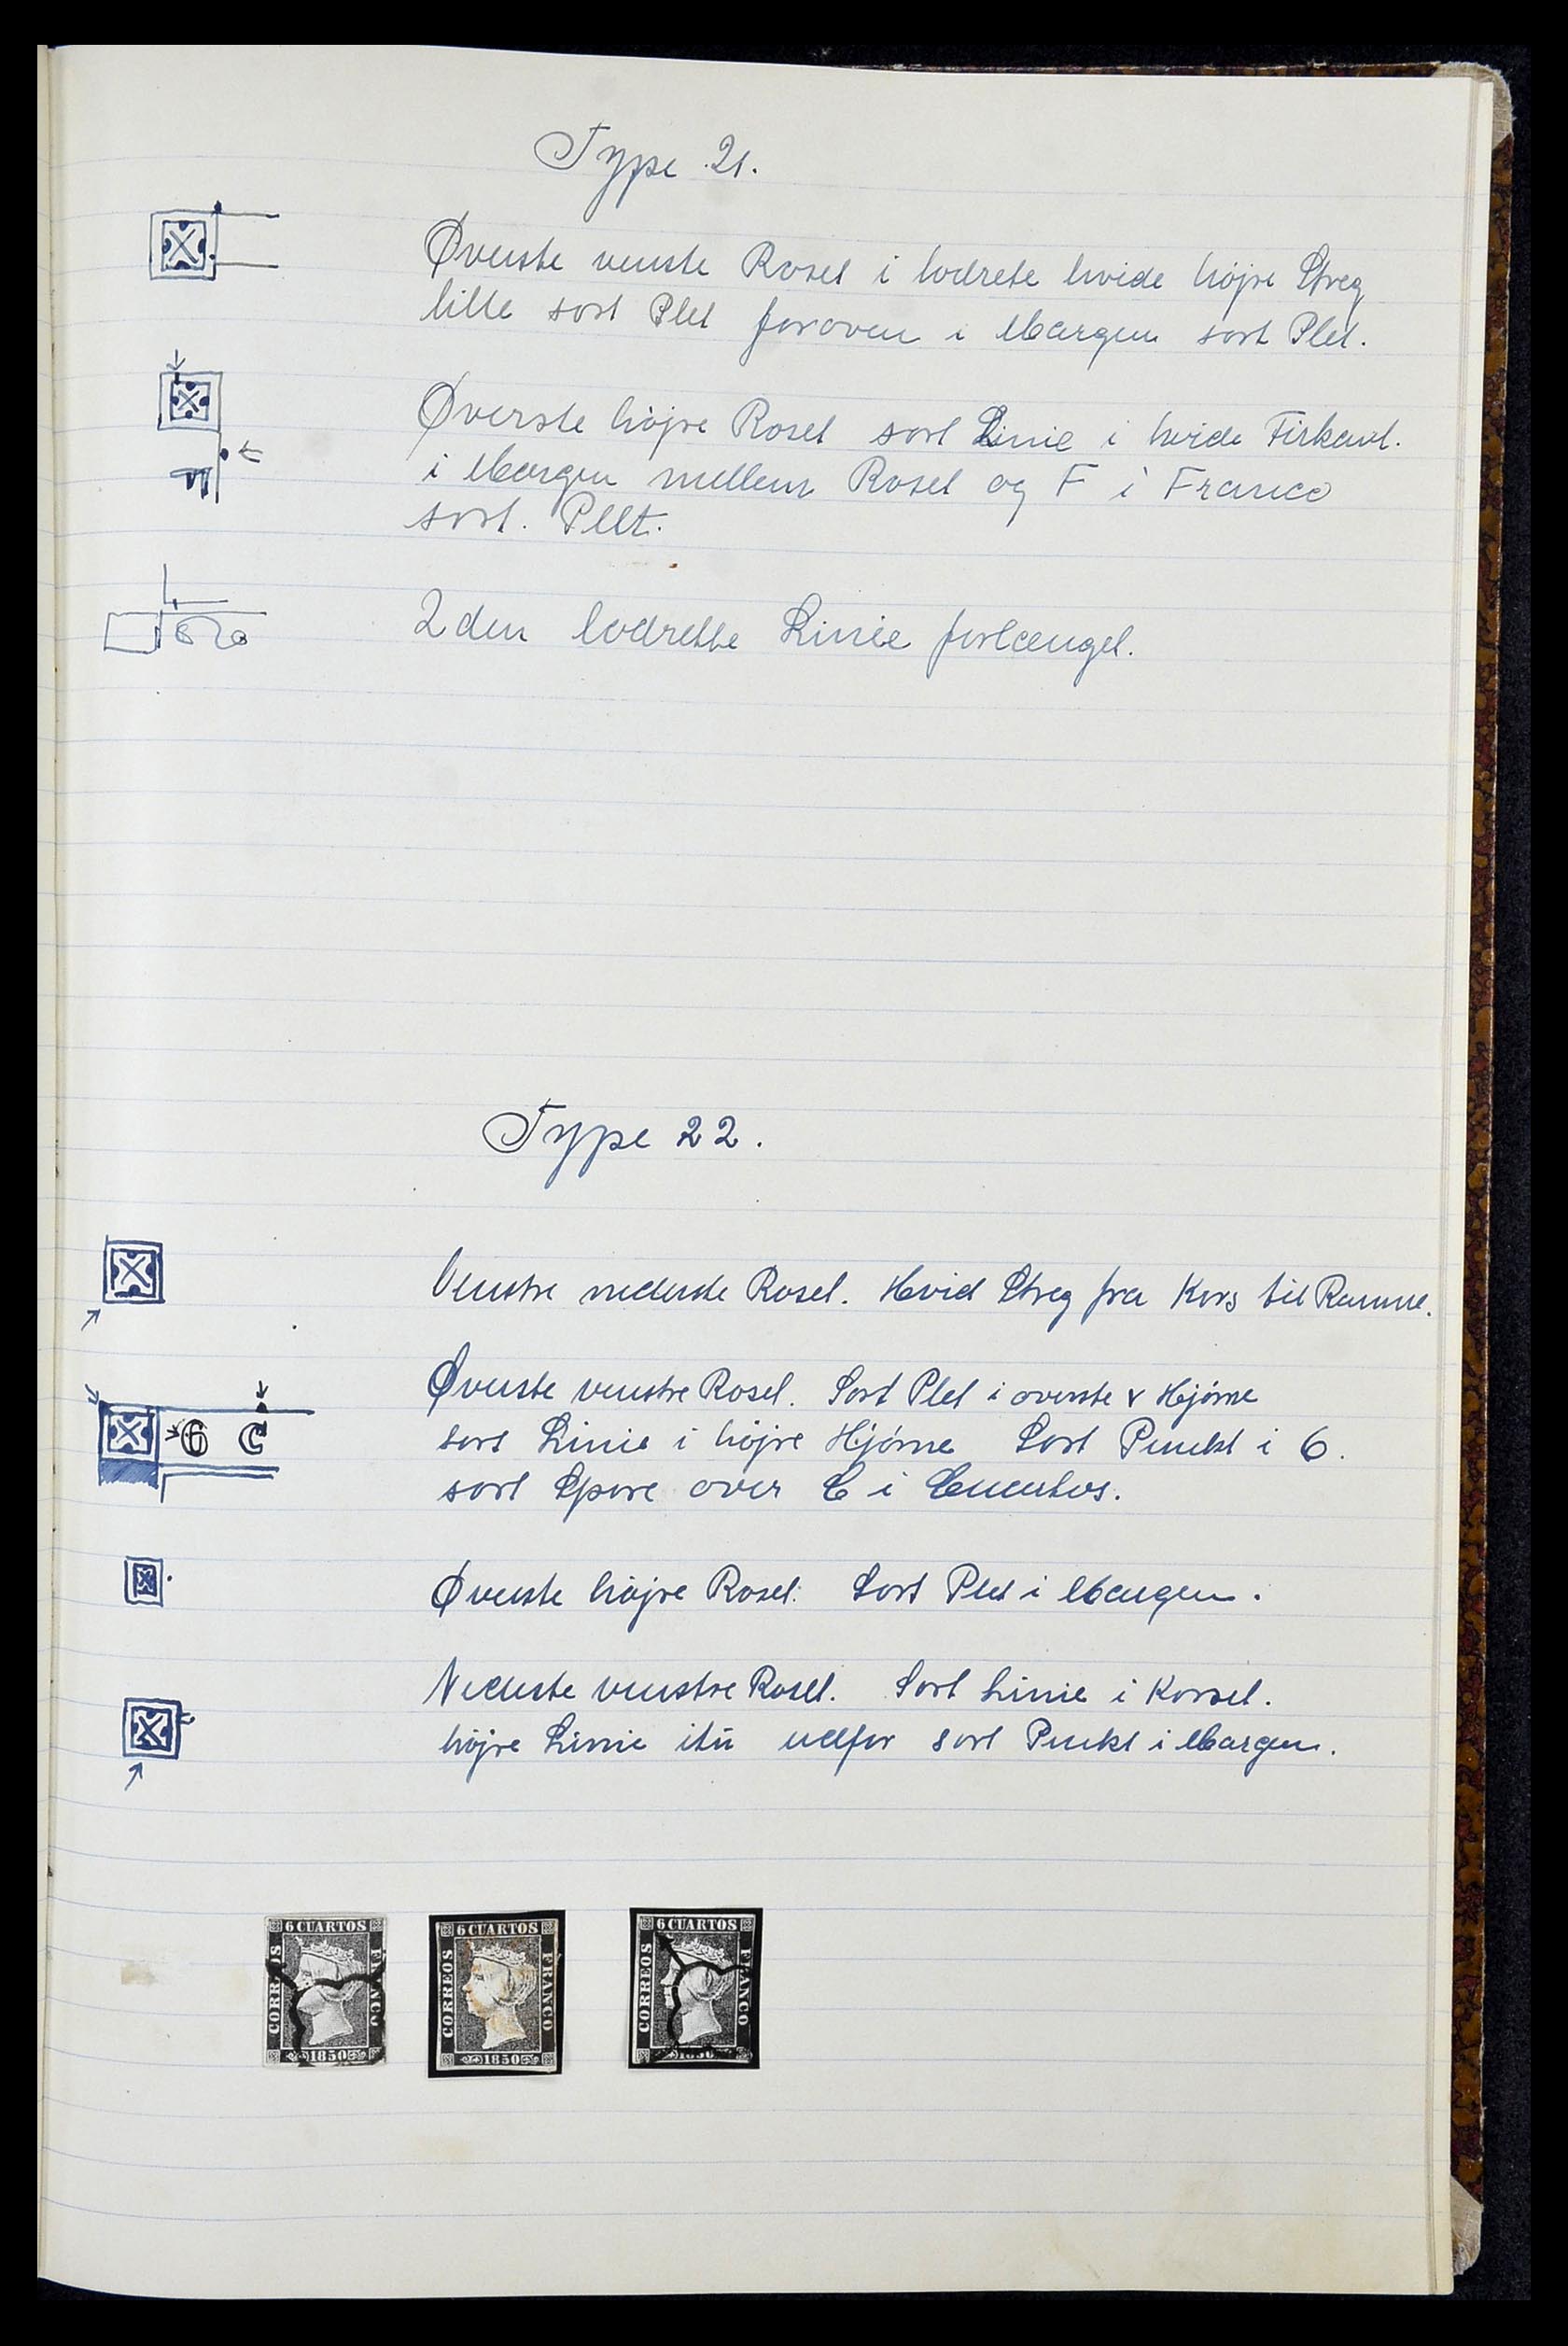 Type 21.
Øverste venste Roset i lodrete hvide højre Streg
lille sort Plet foroven i Margen sort Plet.
Øverste højre Roset sort Linie i hvide Firkant.
i Margen mellem Roset og F i Franco
sort. Plet.
2den lodrette Linie forlænget.
Type 22.
Venstre nederste Roset. Hvid Streg fra Kors til Ramme.
Øverste venstre Roset. Sort Plet i øverste v Hjørne
6 C
sort Linie i højre Hjørne Sort Punkt i 6.
sort Spore over C i Cuentos.
Øverste højre Roset. Sort Plet i Margen.
Nederste venstre Roset. Sort Linie i Korset.
højre Linie itu udfor sort Punkt i Margen.
6 CUARTOS
CORREOS
FRANCO
1850
6 CUARTOS
CORREOS
FRANCO
1850
6 CUARTOS
CORREOS
FRANCO
1850